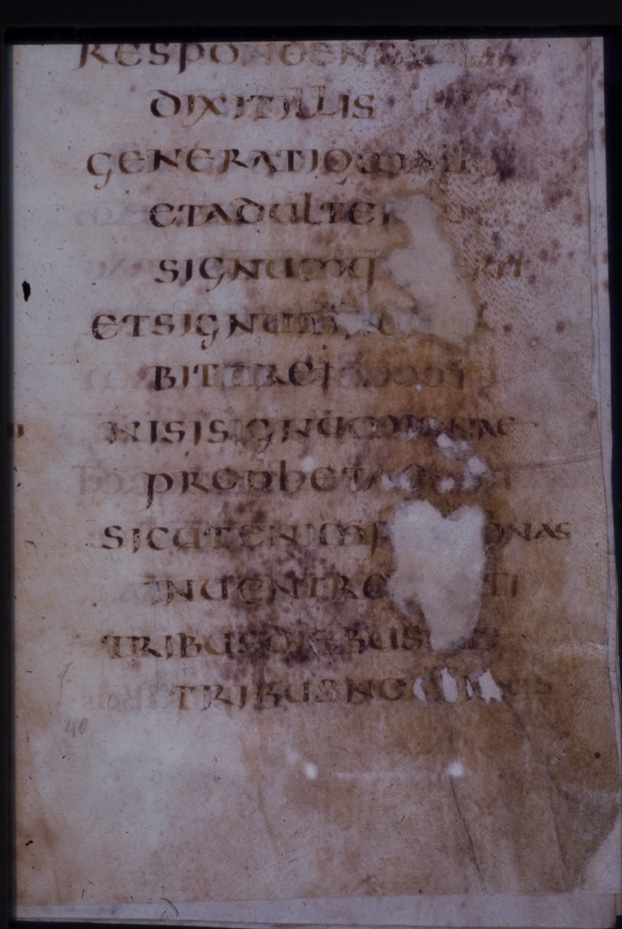 DIXITILLIS
GENERATIOMALA
ETADULTER
SIGNUMQ RIT
ETSIGNUM
BITUREI
NISISIGNUMIONAE
PROPHETAE
SICUTENIMF ONAS
INUENTRE TI
TRIBUSDIEBUS
TRIBUSNO
40